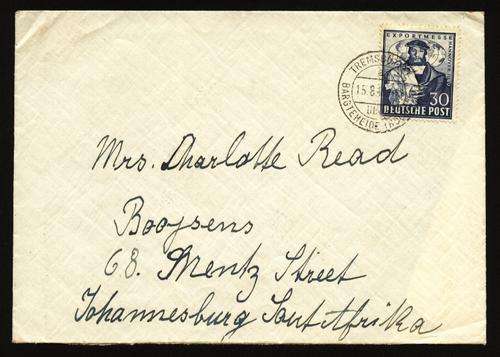 EXPORTMESSE HANNOVER
30
DEUTSCHE POST
15.8.
BARGTEHEIDE
Mrs. Dharlotte Read
Booysens
68. Mentz Street
Johannesburg Sout Afrika